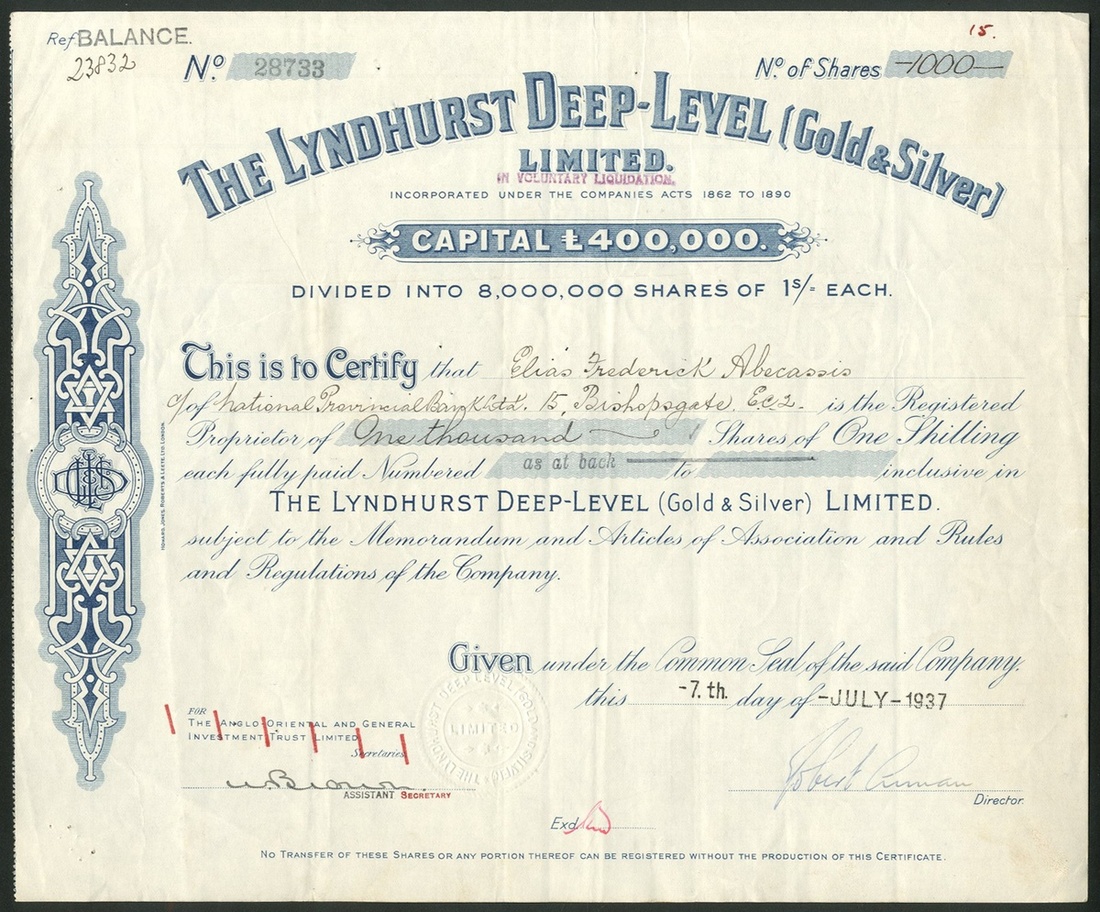 Ref BALANCE.
23832
15.
No. 28733
No. of Shares -1000-
THE LYNDHURST DEEP-LEVEL (Gold & Silver)
LIMITED.
IN VOLUNTARY LIQUIDATION.
INCORPORATED UNDER THE COMPANIES ACTS 1862 TO 1890
CAPITAL £400,000.
DIVIDED INTO 8,000,000 SHARES OF 1s/= EACH.
This is to Certify that Elias Frederick Abecassis
c/o of National Provincial Bank Ltd. 15, Bishopsgate. E.C.2. is the Registered
Proprietor of One thousand Shares of One Shilling
each fully paid Numbered as at back to inclusive in
THE LYNDHURST DEEP-LEVEL (Gold & Silver) LIMITED.
subject to the Memorandum and Articles of Association and Rules
and Regulations of the Company.
HOWARD, JONES, ROBERTS & LEETE, LTD. LONDON.
Given under the Common Seal of the said Company.
this -7.th. day of -JULY-1937
THE LYNDHURST DEEP LEVEL (GOLD AND SILVER)
LIMITED
FOR
THE ANGLO-ORIENTAL AND GENERAL
INVESTMENT TRUST LIMITED
Secretaries
W. Brown
ASSISTANT SECRETARY
Robert
Director.
Exd
NO TRANSFER OF THESE SHARES OR ANY PORTION THEREOF CAN BE REGISTERED WITHOUT THE PRODUCTION OF THIS CERTIFICATE.